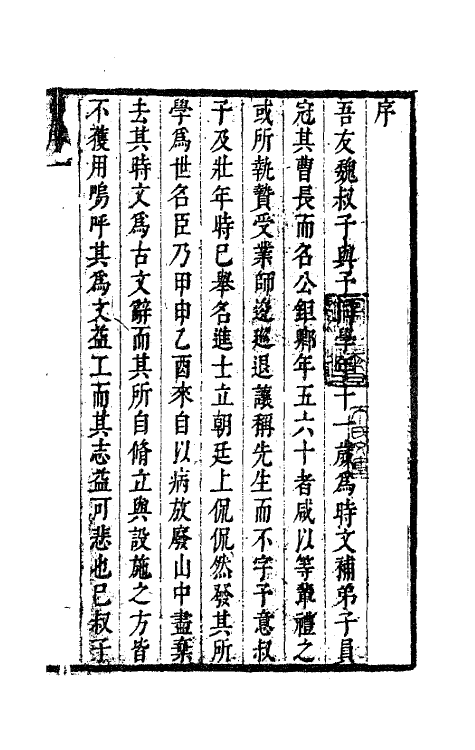 序
吾友魏叔子與予同學年十一歲爲時文補弟子員
冠其曹長而名公鉅鄉年五六十者咸以等輩禮之
或所執贄受業師逡廵退讓稱先生而不字予意叔
子及壯年時已舉名進士立朝廷上侃侃然發其所
學爲世名臣乃甲申乙酉來自以病放廢山中盡棄
去其時文爲古文辭而其所自脩立與設施之方皆
不獲用嗚呼其爲文益工而其志益可悲也已叔子
序
一